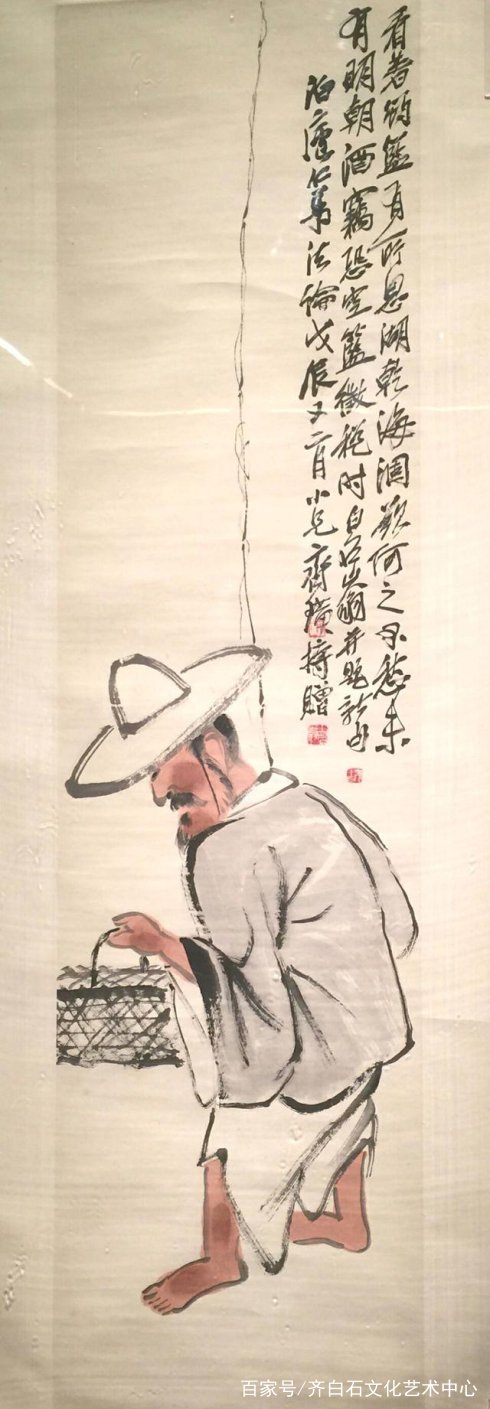 看著筠籃有所思湖乾海涸欲何之不愁未
有明朝酒竊恐空籃徵税时白石山翁并題新句
泊廬仁弟法論戊辰又二月小兄齊璜持贈
百家号/齐白石文化艺术中心